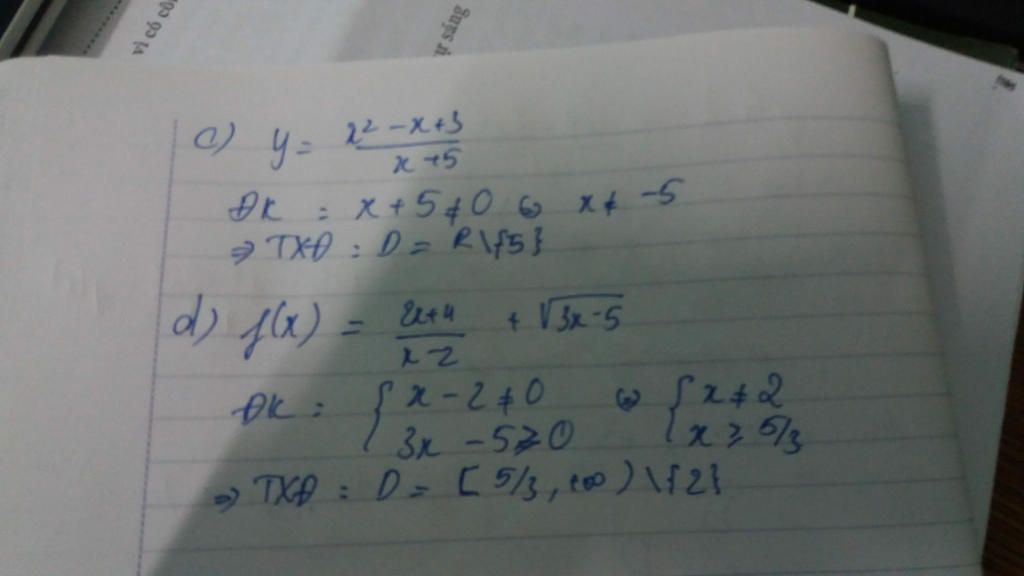 vì có côn
ự sáng
c) y = \frac{x^2 - x + 3}{x + 5}
ĐK : x + 5 ≠ 0 ⇔ x ≠ -5
⇒ TXĐ : D = R\{5}
d) f(x) = \frac{2x+4}{x-2} + \sqrt{3x-5}
ĐK : { x - 2 ≠ 0 ⇔ { x ≠ 2
3x - 5 ≥ 0 x ≥ 5/3
⇒ TXĐ : D = [5/3, +∞) \{2}